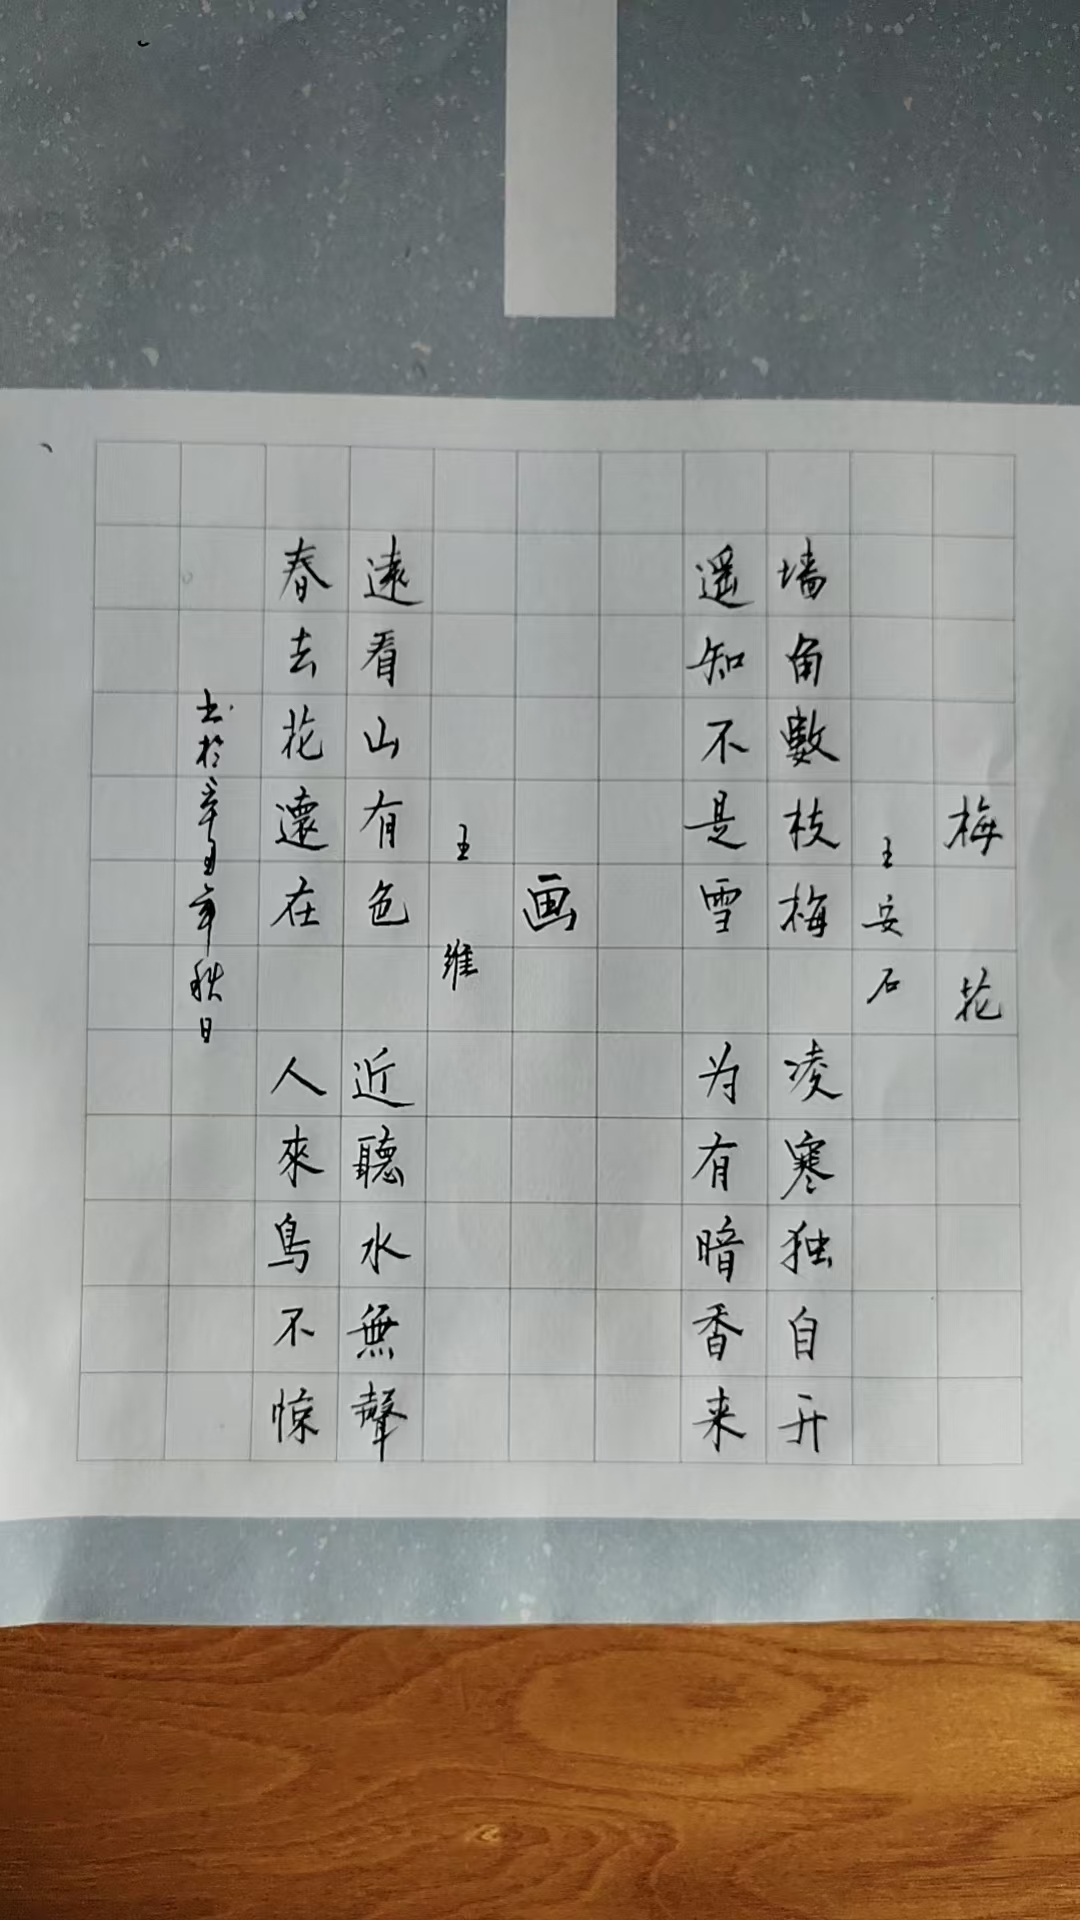 梅花
王安石
墙角數枝梅 凌寒独自开
遥知不是雪 为有暗香来
画
王維
遠看山有色 近聽水無聲
春去花還在 人來鳥不惊
书於辛丑年秋日